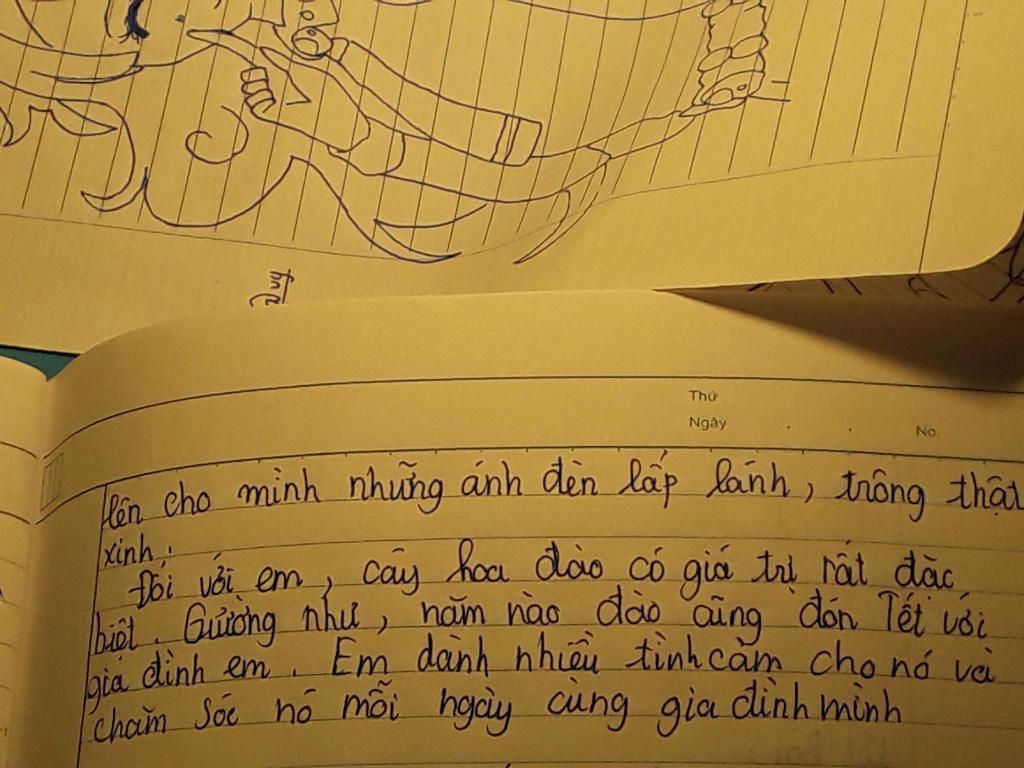 Duy
Thứ
Ngày
No.
lên cho mình những ánh đèn lấp lánh, trông thật
xinh.
Đối với em, cây hoa đào có giá trị rất đặc
biệt. Gường như, năm nào đào cũng đón Tết với
gia đình em. Em dành nhiều tình cảm cho nó và
chăm sóc nó mỗi ngày cùng gia đình mình